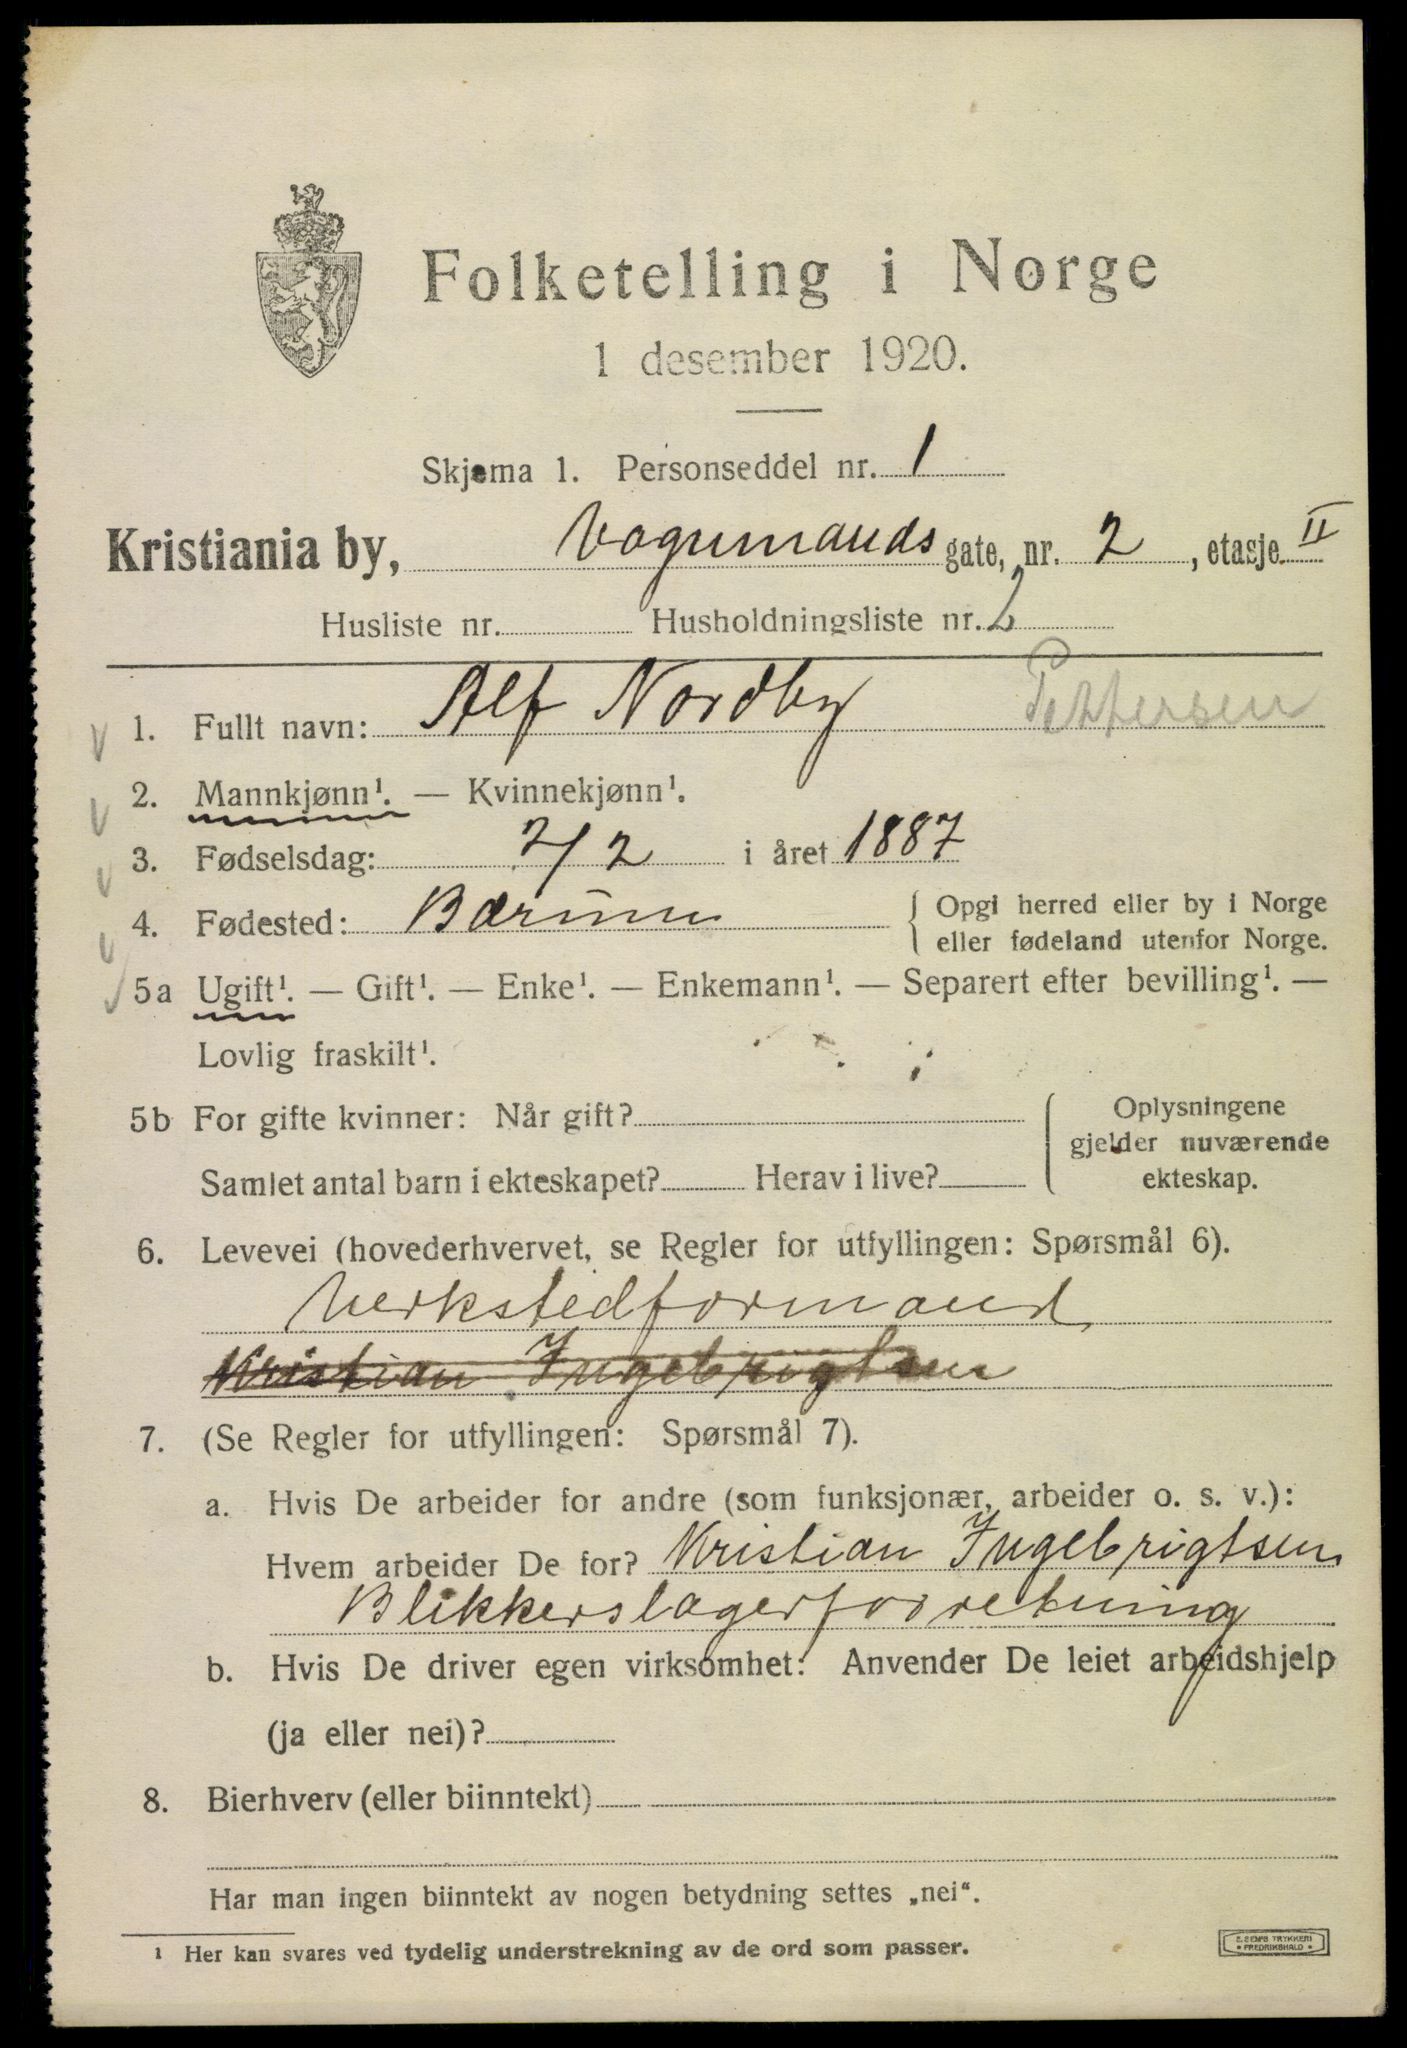 Folketelling i Norge
1 desember 1920.
Skjema 1. Personseddel nr. 1
Kristiania by, Vognmands gate, nr. 2, etasje II
Husliste nr. Husholdningsliste nr. 2
1. Fullt navn: Alf Nordby Pettersen
2. Mannkjønn¹. — Kvinnekjønn¹.
3. Fødselsdag: 2/2 i året 1887
4. Fødested: Bærum { Opgi herred eller by i Norge
eller fødeland utenfor Norge.
5a Ugift¹. — Gift¹. — Enke¹. — Enkemann¹. — Separert efter bevilling¹. —
Lovlig fraskilt¹.
5b For gifte kvinner: Når gift? { Oplysningene
gjelder nuværende
Samlet antal barn i ekteskapet? Herav i live? ekteskap.
6. Levevei (hovederhvervet, se Regler for utfyllingen: Spørsmål 6).
Verkstedformand
Kristian Ingebrigtsen
7. (Se Regler for utfyllingen: Spørsmål 7).
a. Hvis De arbeider for andre (som funksjonær, arbeider o. s. v.):
Hvem arbeider De for? Kristian Ingebrigtsen
Blikkerslagerforretning
b. Hvis De driver egen virksomhet: Anvender De leiet arbeidshjelp
(ja eller nei)?
8. Bierhverv (eller biinntekt)
Har man ingen biinntekt av nogen betydning settes „nei“.
¹ Her kan svares ved tydelig understrekning av de ord som passer.
E. SEMS TRYKKERI
• FREDRIKSHALD •